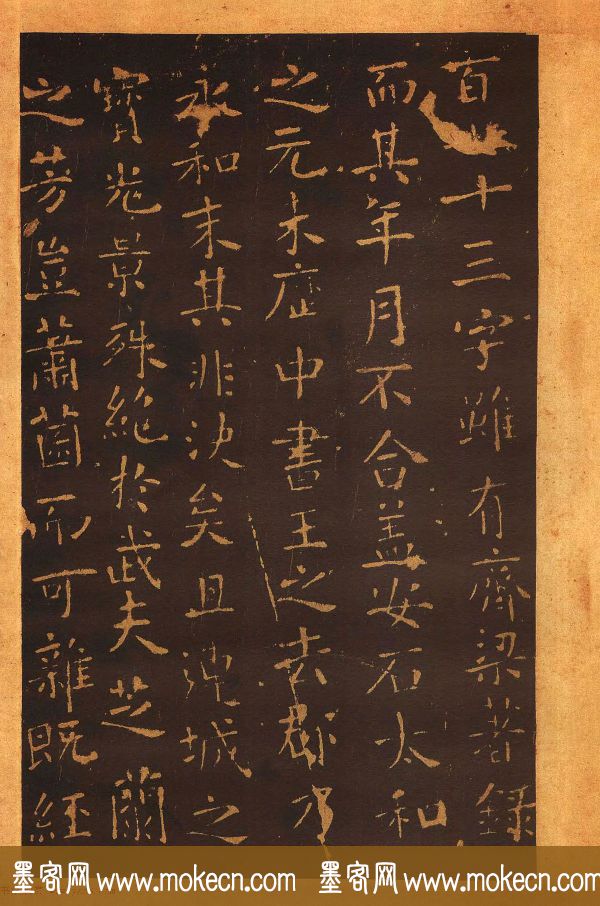 百卅十三字雖有齊梁著錄
而其年月不合盖安石太和
之元未庶中書王之去郡乃
永和末其非決矣且連城之
寶光景殊絶於武夫芝蘭
之芳豈蕭茵而可雜既經
墨客网 www.mokecn.com 墨客网 www.mokecn.com